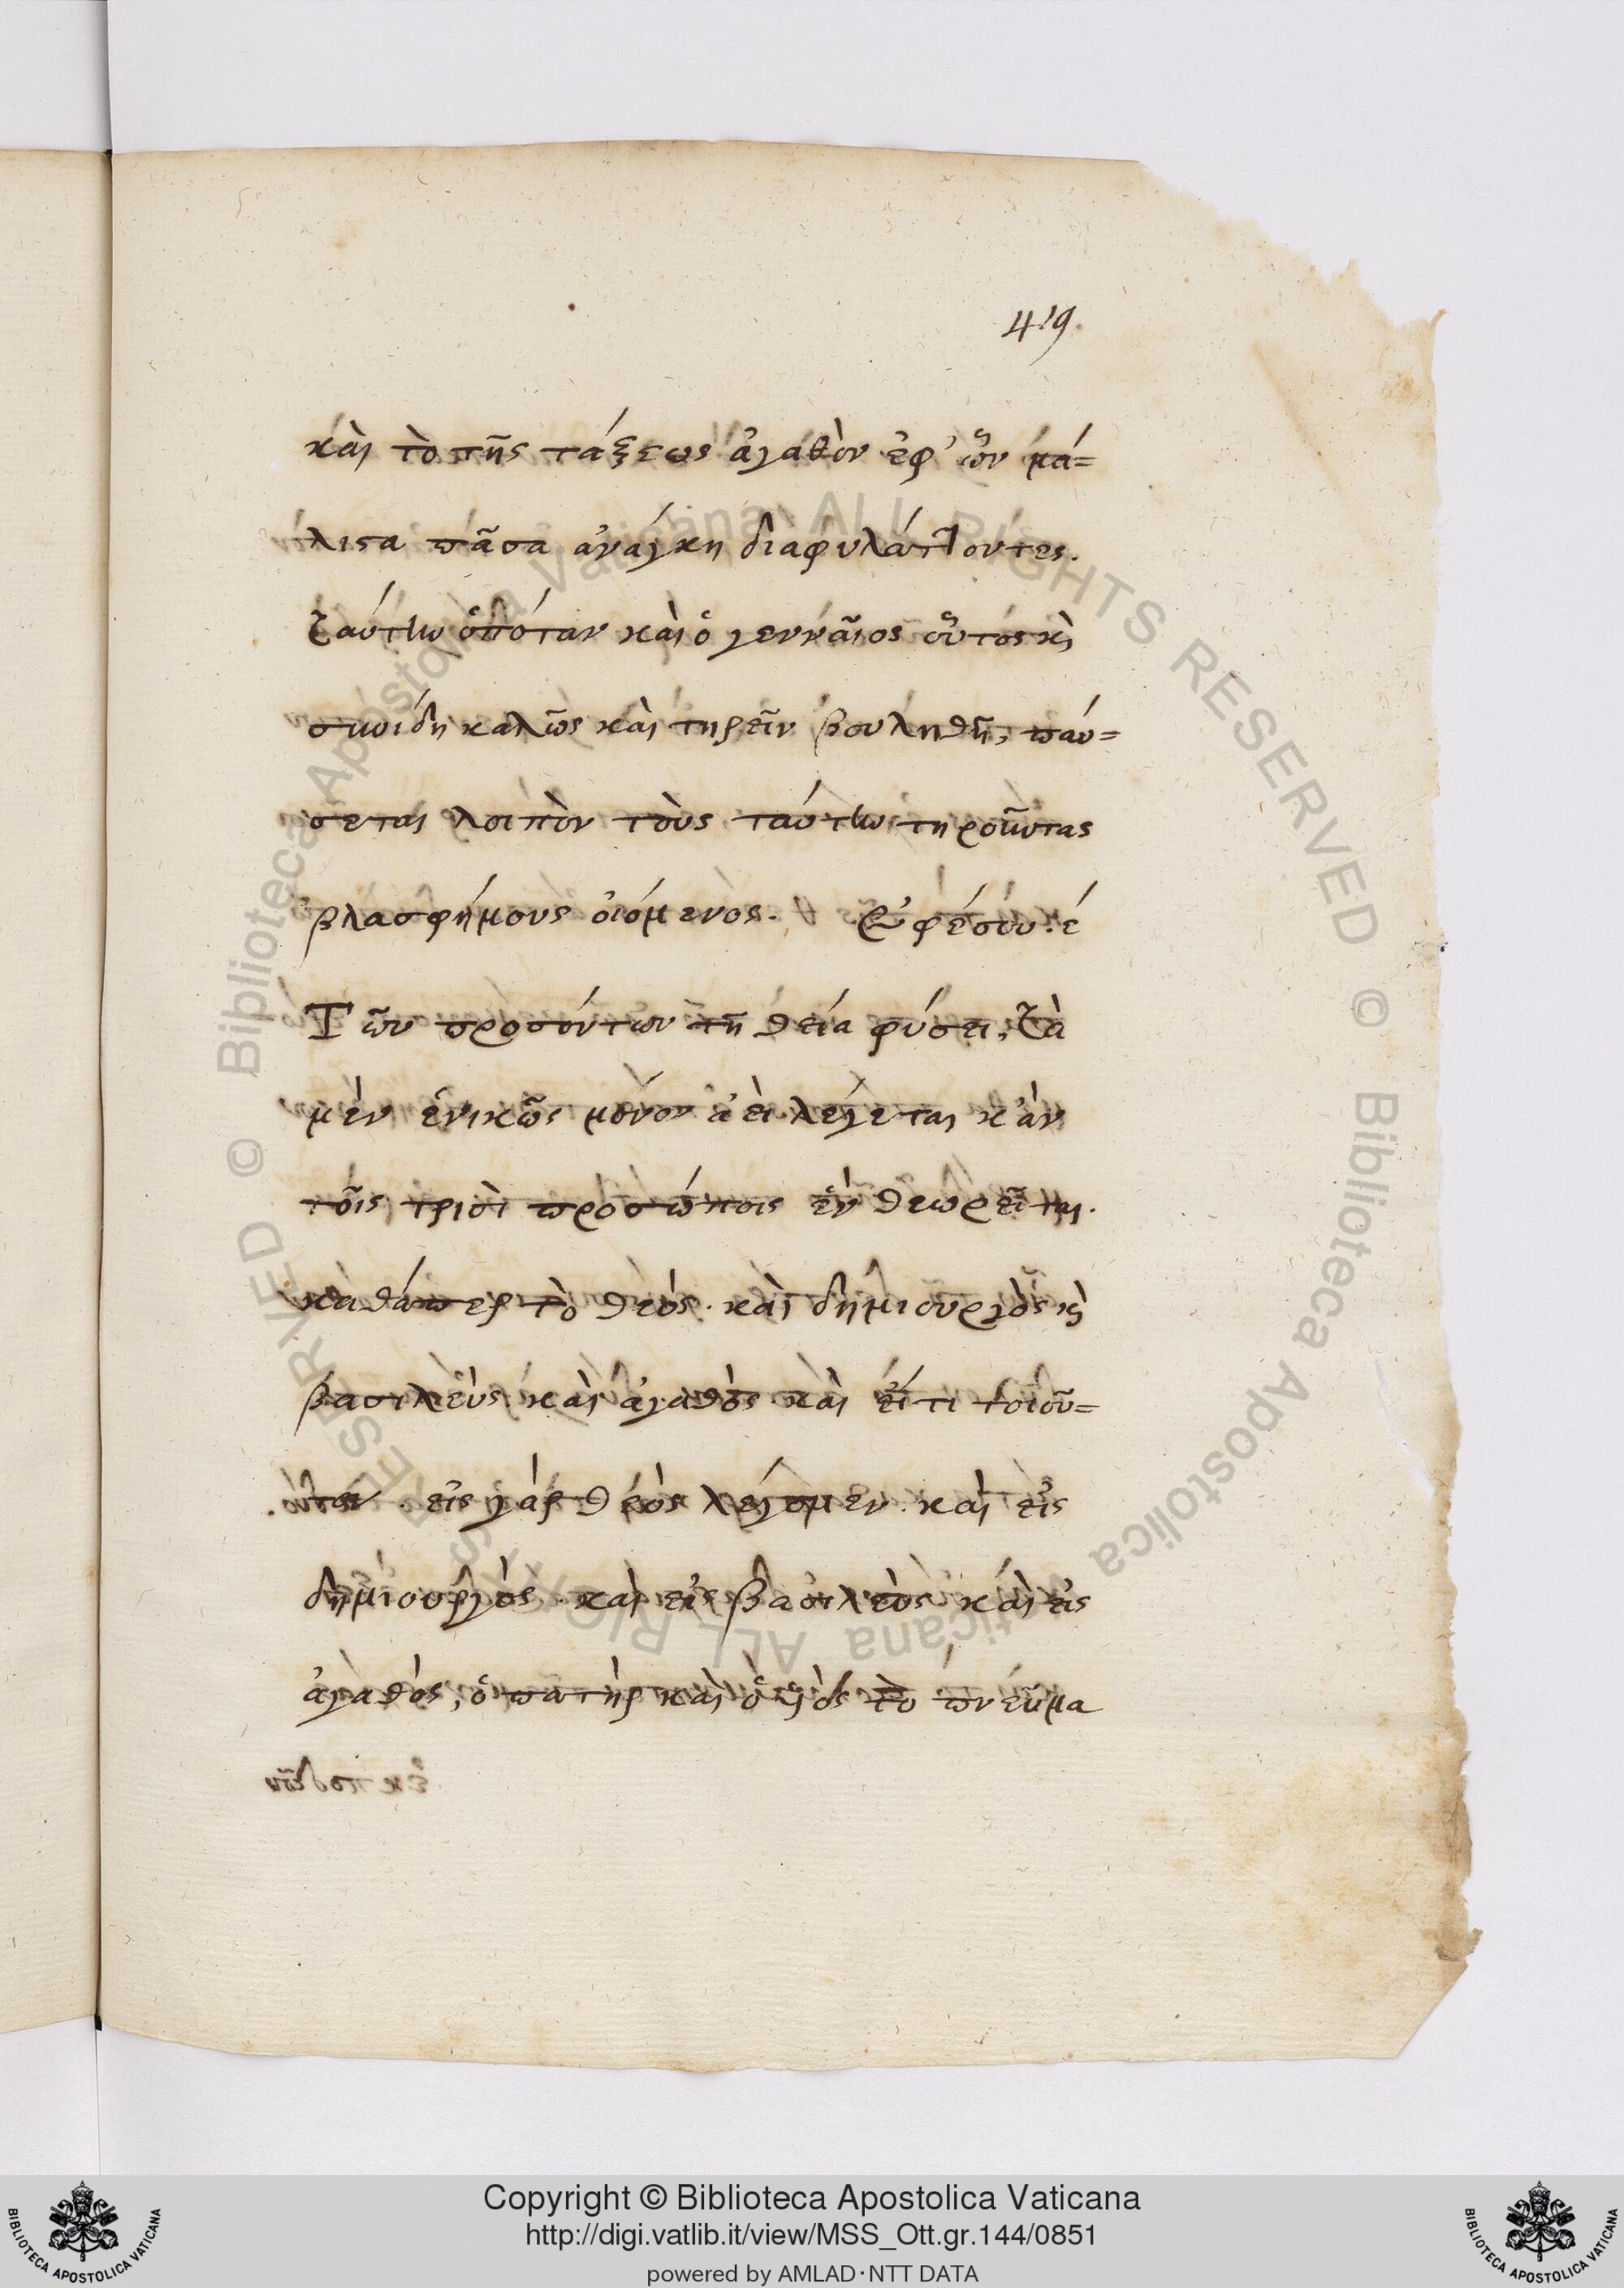 419.
καὶ τὸ τῆς τάξεως ἀγαθὸν ἐφ' ὧν μά=
λιστα πᾶσα ἀνάγκη διαφυλάττοντες.
ταύτην ὁπόταν καὶ ὁ γενναῖος οὗτος κὶ
συνίδη καλῶς καὶ τηρεῖν βουληθῆ, παύ=
σεται λοιπὸν τοὺς ταύτην τηροῦντας
βλασφήμους οἰόμενος. Ἐφέσου. έ
Τῶν προσόντων τῆ θεία φύσει, τὰ
μὲν ἑνικῶς μόνον ἀεὶ λέγεται κ' ἀν
τοῖς τρισὶ προσώποις ἐνθεωρεῖται.
καθάπερ τὸ θεός. καὶ δημιουργὸς κὶ
βασιλεὺς καὶ ἀγαθὸς καὶ εἴ τι τοιοῦ=
τον. εἷς γὰρ θεὸς λέγομεν. καὶ εἷς
δημιουργὸς. καὶ εἷς βασιλεὺς καὶ εἷς
ἀγαθὸς, ὁ πατὴρ καὶ ὁ υἱὸς τὸ πνεῦμα
Copyright © Biblioteca Apostolica Vaticana
http://digi.vatlib.it/view/MSS_Ott.gr.144/0851
powered by AMLAD·NTT DATA
BIBLIOTECA APOSTOLICA VATICANA
BIBLIOTECA APOSTOLICA VATICANA
© Biblioteca Apostolica Vaticana ALL RIGHTS RESERVED
© Biblioteca Apostolica Vaticana ALL RIGHTS RESERVED